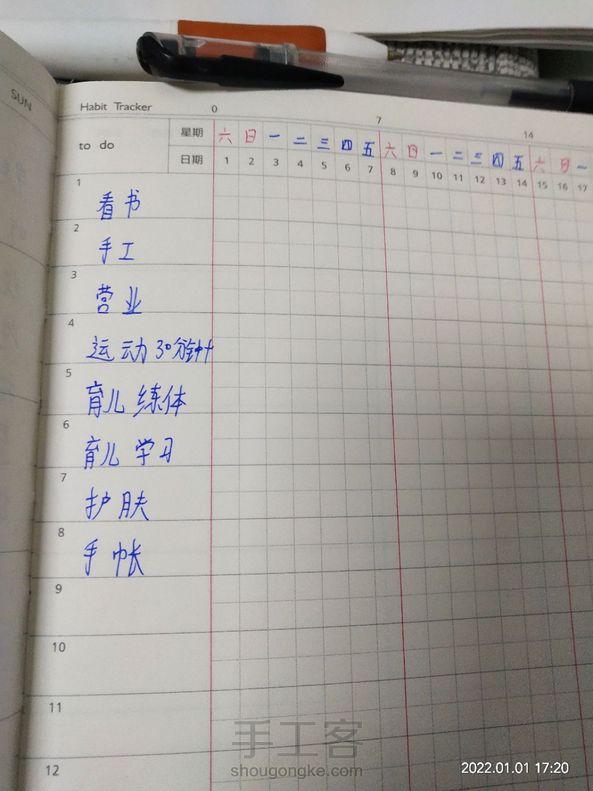 SUN
Habit Tracker 0 7 14
to do 星期 六 日 一 二 三 四 五 六 日 一 二 三 四 五 六 日 一
日期 1 2 3 4 5 6 7 8 9 10 11 12 13 14 15 16 17
1 看书
2 手工
3 营业
4 运动30分钟
5 育儿 练体
6 育儿 学习
7 护肤
8 手帐
9
10
11
12
手工客
shougongke.com
2022.01.01 17:20